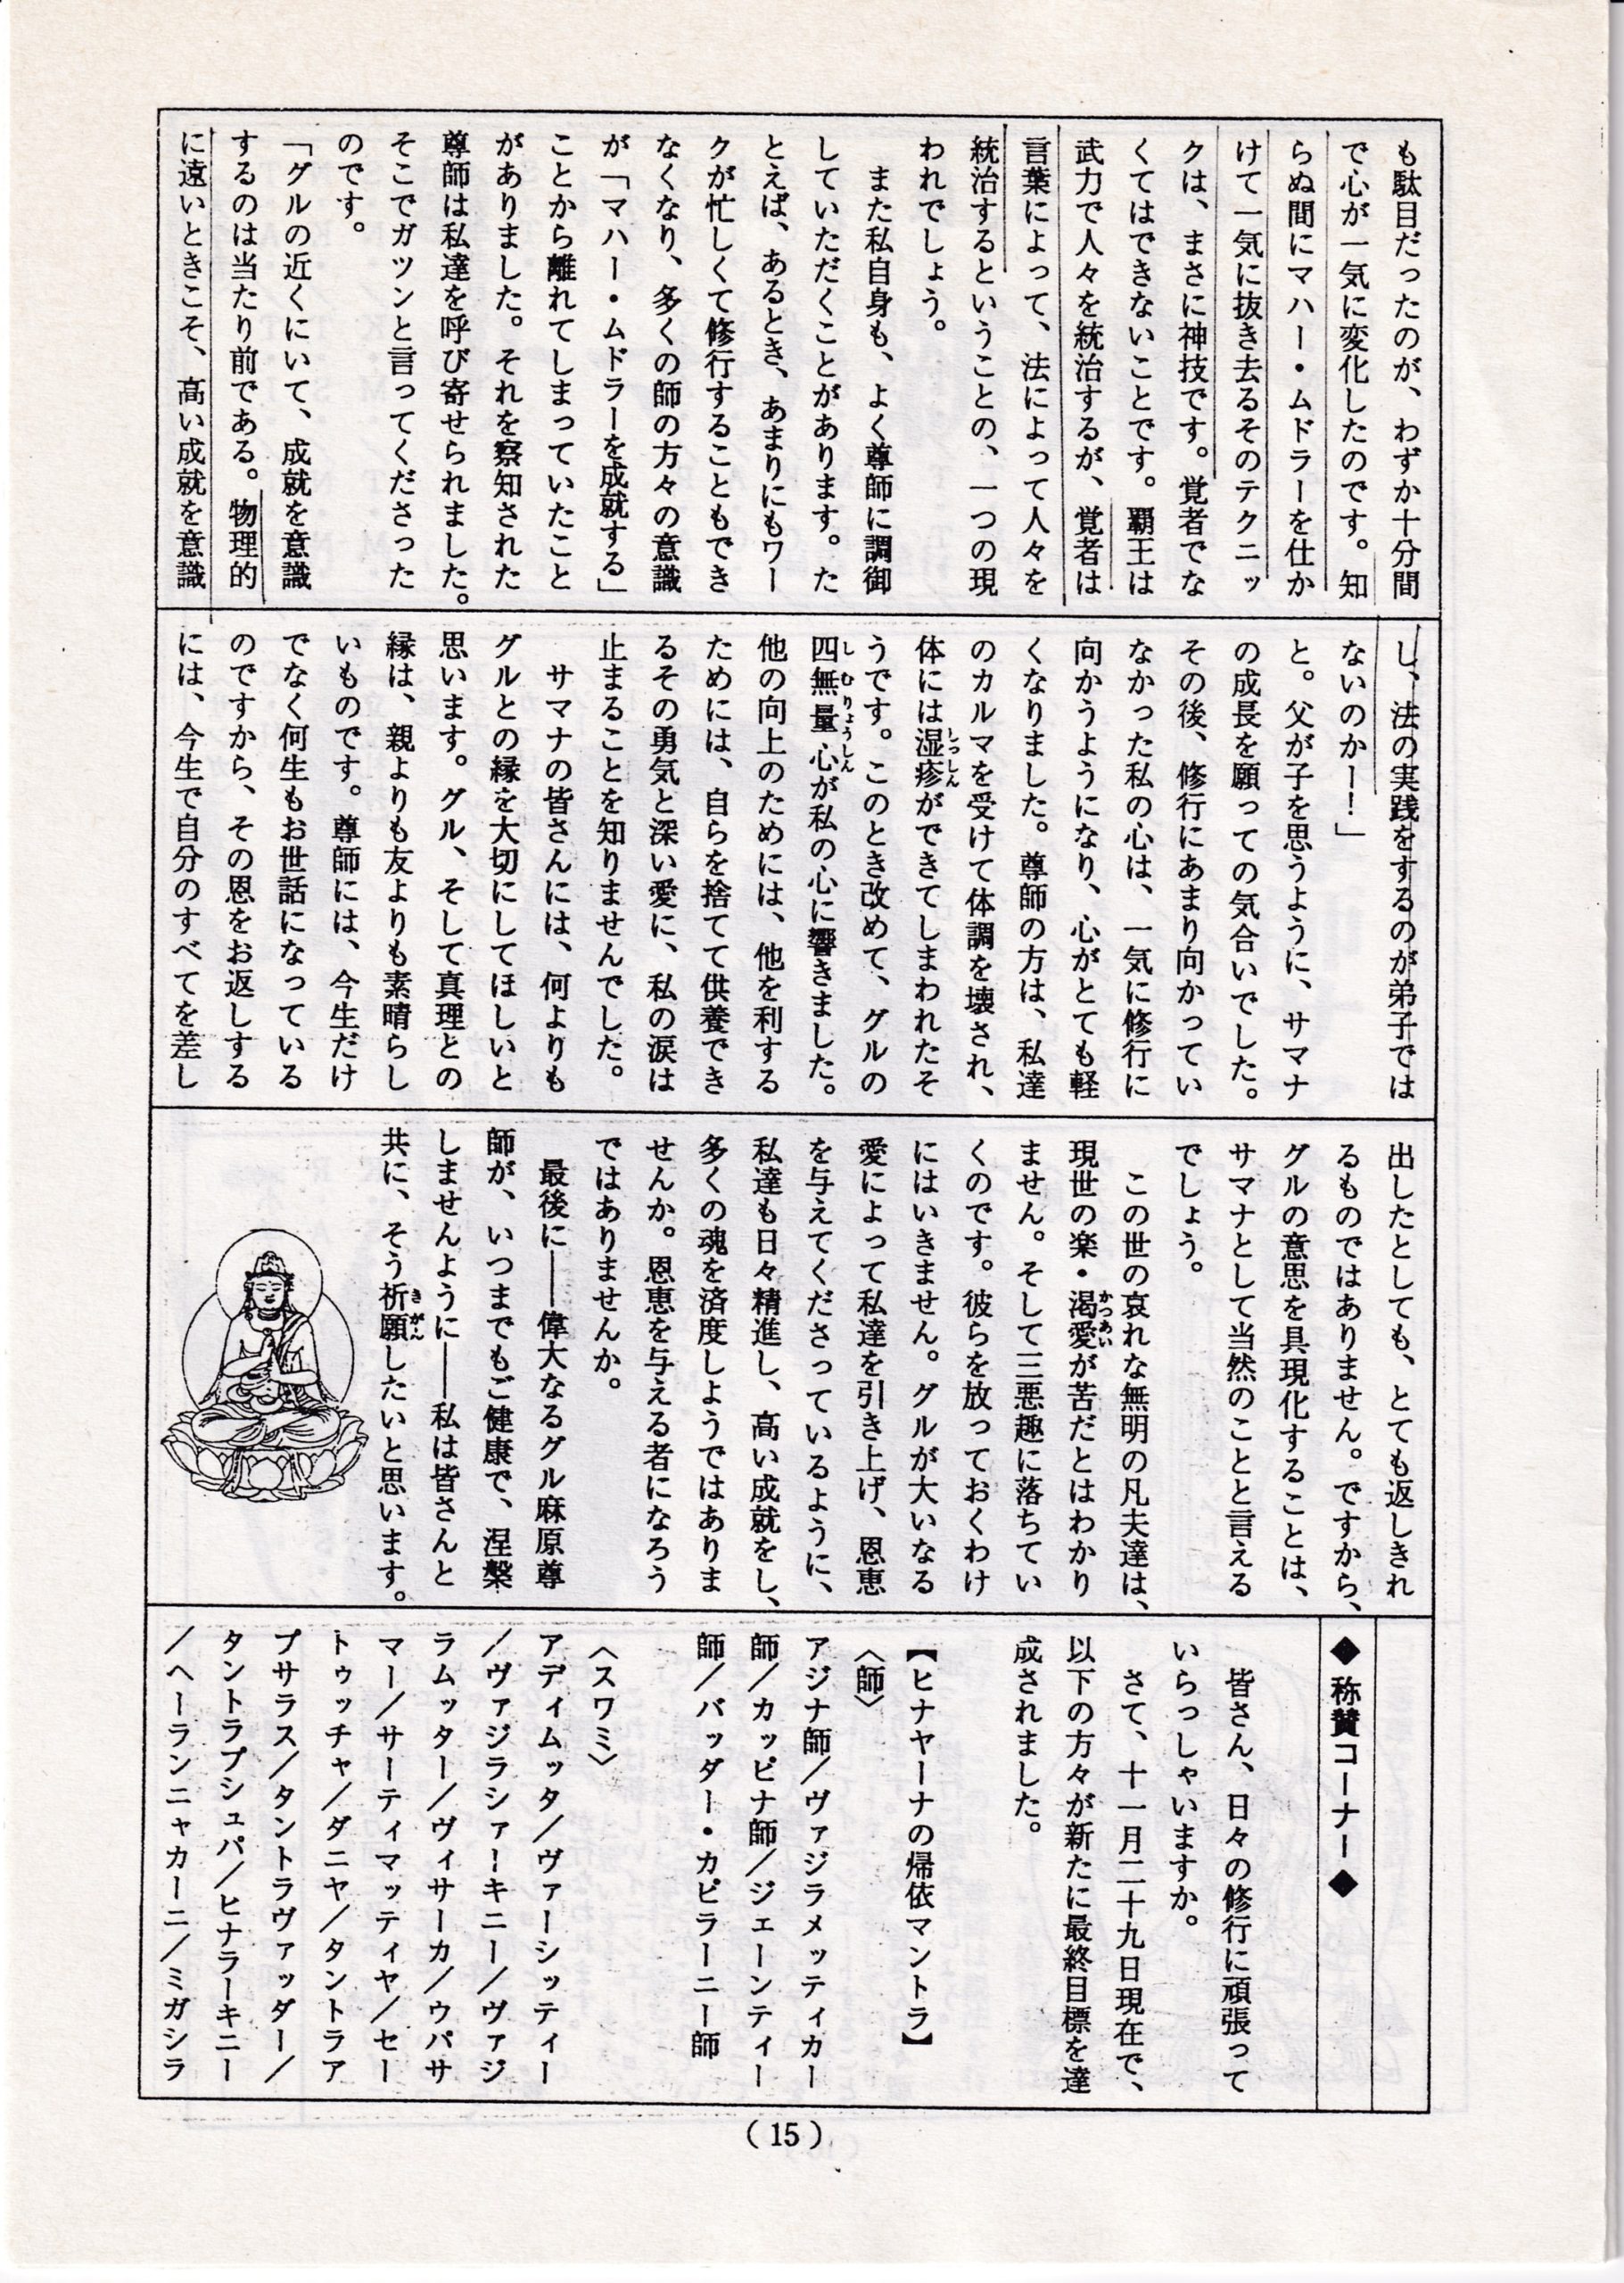 も駄目だったのが、わずか十分間
で心が一気に変化したのです。知
らぬ間にマハー・ムドラーを仕か
けて一気に抜き去るそのテクニッ
クは、まさに神技です。覚者でな
くてはできないことです。覇王は
武力で人々を統治するが、覚者は
言葉によって、法によって人々を
統治するということの、一つの現
われでしょう。
また私自身も、よく尊師に調御
していただくことがあります。た
とえば、あるとき、あまりにもワー
クが忙しくて修行することもでき
なくなり、多くの師の方々の意識
が「マハー・ムドラーを成就する」
ことから離れてしまっていたこと
がありました。それを察知された
尊師は私達を呼び寄せられました。
そこでガツンと言ってくださった
のです。
「グルの近くにいて、成就を意識
するのは当たり前である。物理的
に遠いときこそ、高い成就を意識
し、法の実践をするのが弟子では
ないのかー！」
と。父が子を思うように、サマナ
の成長を願っての気合いでした。
その後、修行にあまり向かってい
なかった私の心は、一気に修行に
向かうようになり、心がとても軽
くなりました。尊師の方は、私達
のカルマを受けて体調を壊され、
体には湿疹ができてしまわれたそ
うです。このとき改めて、グルの
四無量心が私の心に響きました。
他の向上のためには、他を利する
ためには、自らを捨てて供養でき
るその勇気と深い愛に、私の涙は
止まることを知りませんでした。
サマナの皆さんには、何よりも
グルとの縁を大切にしてほしいと
思います。グル、そして真理との
縁は、親よりも友よりも素晴らし
いものです。尊師には、今生だけ
でなく何生もお世話になっている
のですから、その恩をお返しする
には、今生で自分のすべてを差し
出したとしても、とても返しきれ
るものではありません。ですから、
グルの意思を具現化することは、
サマナとして当然のことと言える
でしょう。
この世の哀れな無明の凡夫達は、
現世の楽・渇愛が苦だとはわかり
ません。そして三悪趣に落ちてい
くのです。彼らを放っておくわけ
にはいきません。グルが大いなる
愛によって私達を引き上げ、恩恵
を与えてくださっているように、
私達も日々精進し、高い成就をし、
多くの魂を済度しようではありま
せんか。恩恵を与える者になろう
ではありませんか。
最後に――偉大なるグル麻原尊
師が、いつまでもご健康で、涅槃
しませんように――私は皆さんと
共に、そう祈願したいと思います。
◆称賛コーナー◆
皆さん、日々の修行に頑張って
いらっしゃいますか。
さて、十一月二十九日現在で、
以下の方々が新たに最終目標を達
成されました。
【ヒナヤーナの帰依マントラ】
〈師〉
アジナ師／ヴァジラメッティカー
師／カッピナ師／ジェーンティー
師／バッダー・カピラーニー師
〈スワミ〉
アディムッタ／ヴァーシッティー
／ヴァジラシァーキニー／ヴァジ
ラムッター／ヴィサーカ／ウパサ
マー／サーティマッティヤ／セー
トゥッチャ／ダニヤ／タントラア
プサラス／タントラヴァッダー／
タントラプシュパ／ヒナラーキニー
／ヘーランニャカーニ／ミガシラ
（15）